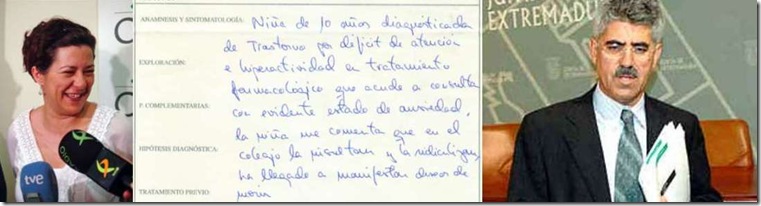 EXTREMADU
ANAMNESIS Y SINTOMATOLOGÍA: Niña de 10 años diagnósticada
de Trastorno por déficit de atención
EXPLORACIÓN:
e hiperactividad en tratamiento
farmacológico que acude a consulta
P. COMPLEMENTARIAS:
con evidente estado de ansiedad,
la niña me comenta que en el
HIPÓTESIS DIAGNÓSTICA:
colegio la insultan y la ridiculizan,
ha llegado a manifestar deseos de
TRATAMIENTO PREVIO:
morir
tve